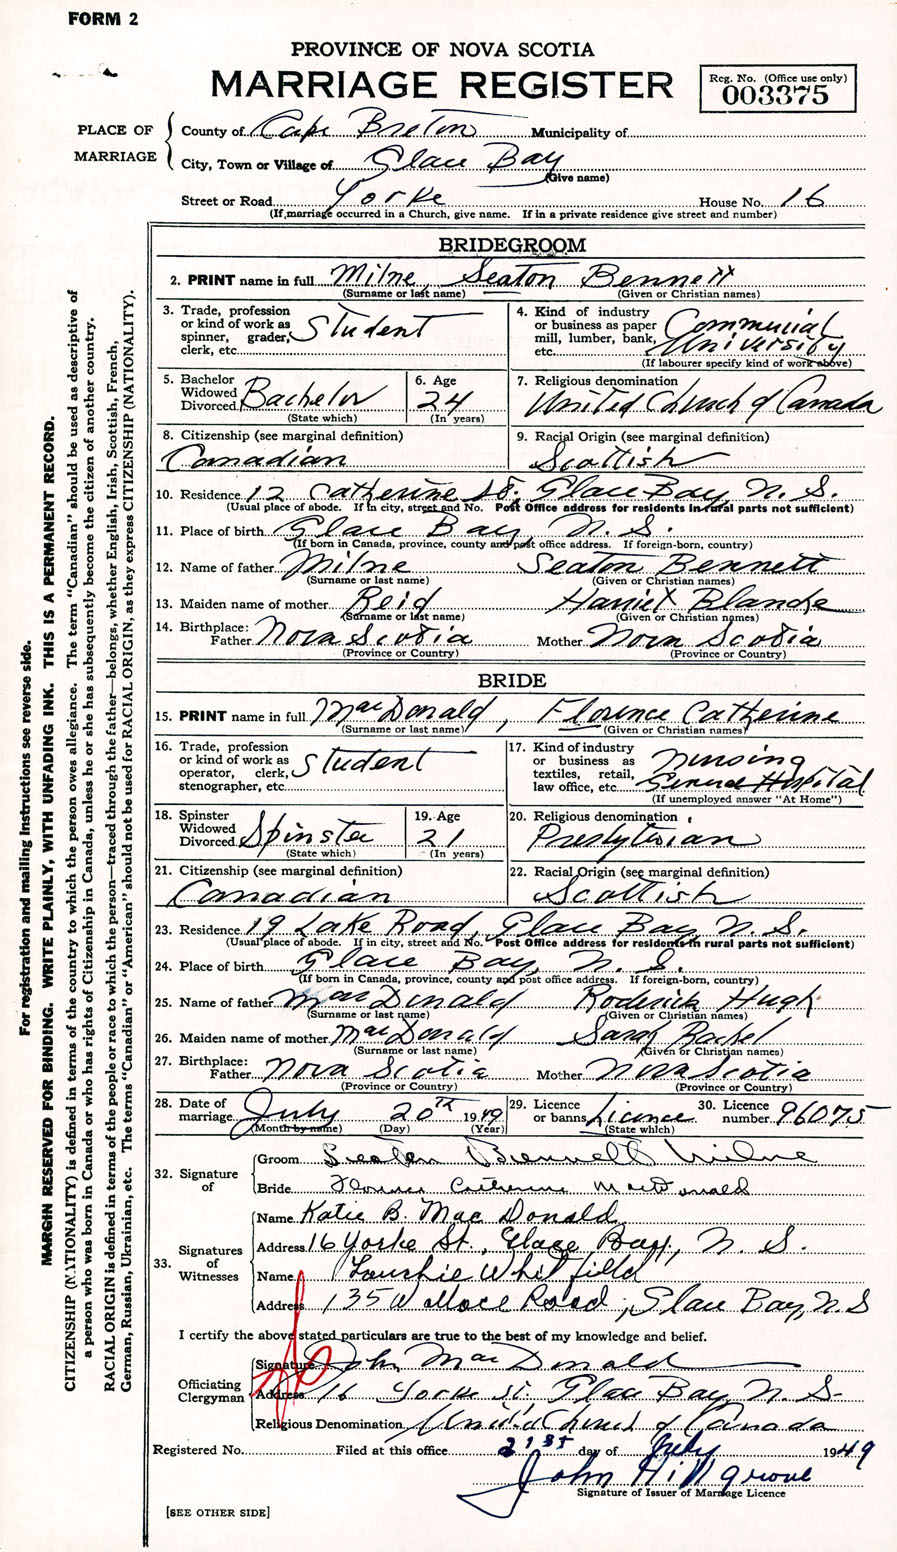 FORM 2
PROVINCE OF NOVA SCOTIA
MARRIAGE REGISTER
Reg. No. (Office use only)
003375
PLACE OF MARRIAGE
County of Cape Breton Municipality of
City, Town or Village of Glace Bay
(Give name)
Street or Road Yorke House No. 16
(If marriage occurred in a Church, give name. If in a private residence give street and number)
BRIDEGROOM
2. PRINT name in full Milne, Seaton Bennett
(Surname or last name) (Given or Christian names)
3. Trade, profession or kind of work as spinner, grader, clerk, etc. Student
4. Kind of industry or business as paper mill, lumber, bank, etc. Commercial University
(If labourer specify kind of work above)
5. Bachelor Widowed Divorced Bachelor
(State which)
6. Age 24
(In years)
7. Religious denomination
United Church of Canada
8. Citizenship (see marginal definition)
Canadian
9. Racial Origin (see marginal definition)
Scottish
10. Residence 12 Catherine St. Glace Bay, N. S.
(Usual place of abode. If in city, street and No. Post Office address for residents in rural parts not sufficient)
11. Place of birth Glace Bay, N. S.
(If born in Canada, province, county and post office address. If foreign-born, country)
12. Name of father Milne Seaton Bennett
(Surname or last name) (Given or Christian names)
13. Maiden name of mother Reid Harriet Blanche
(Surname or last name) (Given or Christian names)
14. Birthplace: Father Nova Scotia Mother Nova Scotia
(Province or Country) (Province or Country)
BRIDE
15. PRINT name in full MacDonald, Florence Catherine
(Surname or last name) (Given or Christian names)
16. Trade, profession or kind of work as operator, clerk, stenographer, etc. Student
17. Kind of industry or business as textiles, retail, law office, etc. Nursing General Hospital
(If unemployed answer "At Home")
18. Spinster Widowed Divorced Spinster
(State which)
19. Age 21
(In years)
20. Religious denomination
Presbyterian
21. Citizenship (see marginal definition)
Canadian
22. Racial Origin (see marginal definition)
Scottish
23. Residence 19 Lake Road, Glace Bay N. S.
(Usual place of abode. If in city, street and No. Post Office address for residents in rural parts not sufficient)
24. Place of birth Glace Bay, N. S.
(If born in Canada, province, county and post office address. If foreign-born, country)
25. Name of father MacDonald Roderick Hugh
(Surname or last name) (Given or Christian names)
26. Maiden name of mother MacDonald Sarah Rachel
(Surname or last name) (Given or Christian names)
27. Birthplace: Father Nova Scotia Mother Nova Scotia
(Province or Country) (Province or Country)
28. Date of marriage July 20th 1949
(Month by name) (Day) (Year)
29. Licence or banns Licence
(State which)
30. Licence number 96075
32. Signature of
Groom Seaton Bennett Milne
Bride Florence Catherine MacDonald
33. Signatures of Witnesses
Name Katie B. MacDonald
Address 16 Yorke St., Glace Bay, N. S.
Name Whitfield
Address 135 Wallace Road, Glace Bay, N.S
I certify the above stated particulars are true to the best of my knowledge and belief.
Officiating Clergyman
Signature John MacDonald
Address 16 Yorke St. Glace Bay N. S.
Religious Denomination United Church of Canada
Registered No. Filed at this office 21st day of July 1949
John Hillgrove
Signature of Issuer of Marriage Licence
[SEE OTHER SIDE]
For registration and mailing instructions see reverse side.
MARGIN RESERVED FOR BINDING. WRITE PLAINLY, WITH UNFADING INK. THIS IS A PERMANENT RECORD.
CITIZENSHIP (NATIONALITY) is defined in terms of the country to which the person owes allegiance. The term "Canadian" should be used as descriptive of
a person who was born in Canada or who has rights of Citizenship in Canada, unless he or she has subsequently become the citizen of another country.
RACIAL ORIGIN is defined in terms of the people or race to which the person—traced through the father—belongs, whether English, Irish, Scottish, French,
German, Russian, Ukrainian, etc. The terms "Canadian" or "American" should not be used for RACIAL ORIGIN, as they express CITIZENSHIP (NATIONALITY).